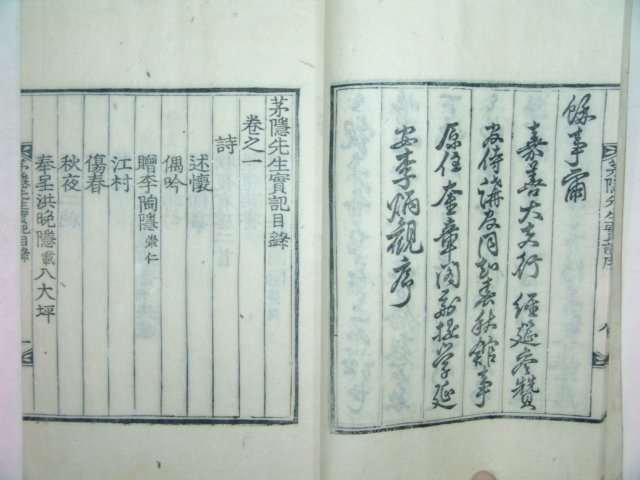 餘事爾
嘉善大夫行 經延參贊
官侍講官同知春秋館事
原任奎章閣副提學延
安李炳觀序
茅隱先生實記目錄
卷之一
詩
述懷
偶吟
贈李陶隱崇仁
江村
傷春
秋夜
奉呈洪晩隱載八大坪